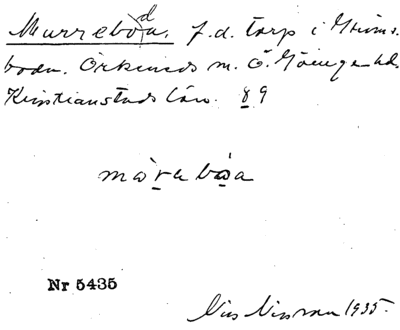 Murreboda. f.d. torp i Ströms-
boda. Örkeneds sn. Ö. Göinge hd.
Kristianstads län. § 9
mòrebòa
Nr 5435
Nils Nilsson 1935.